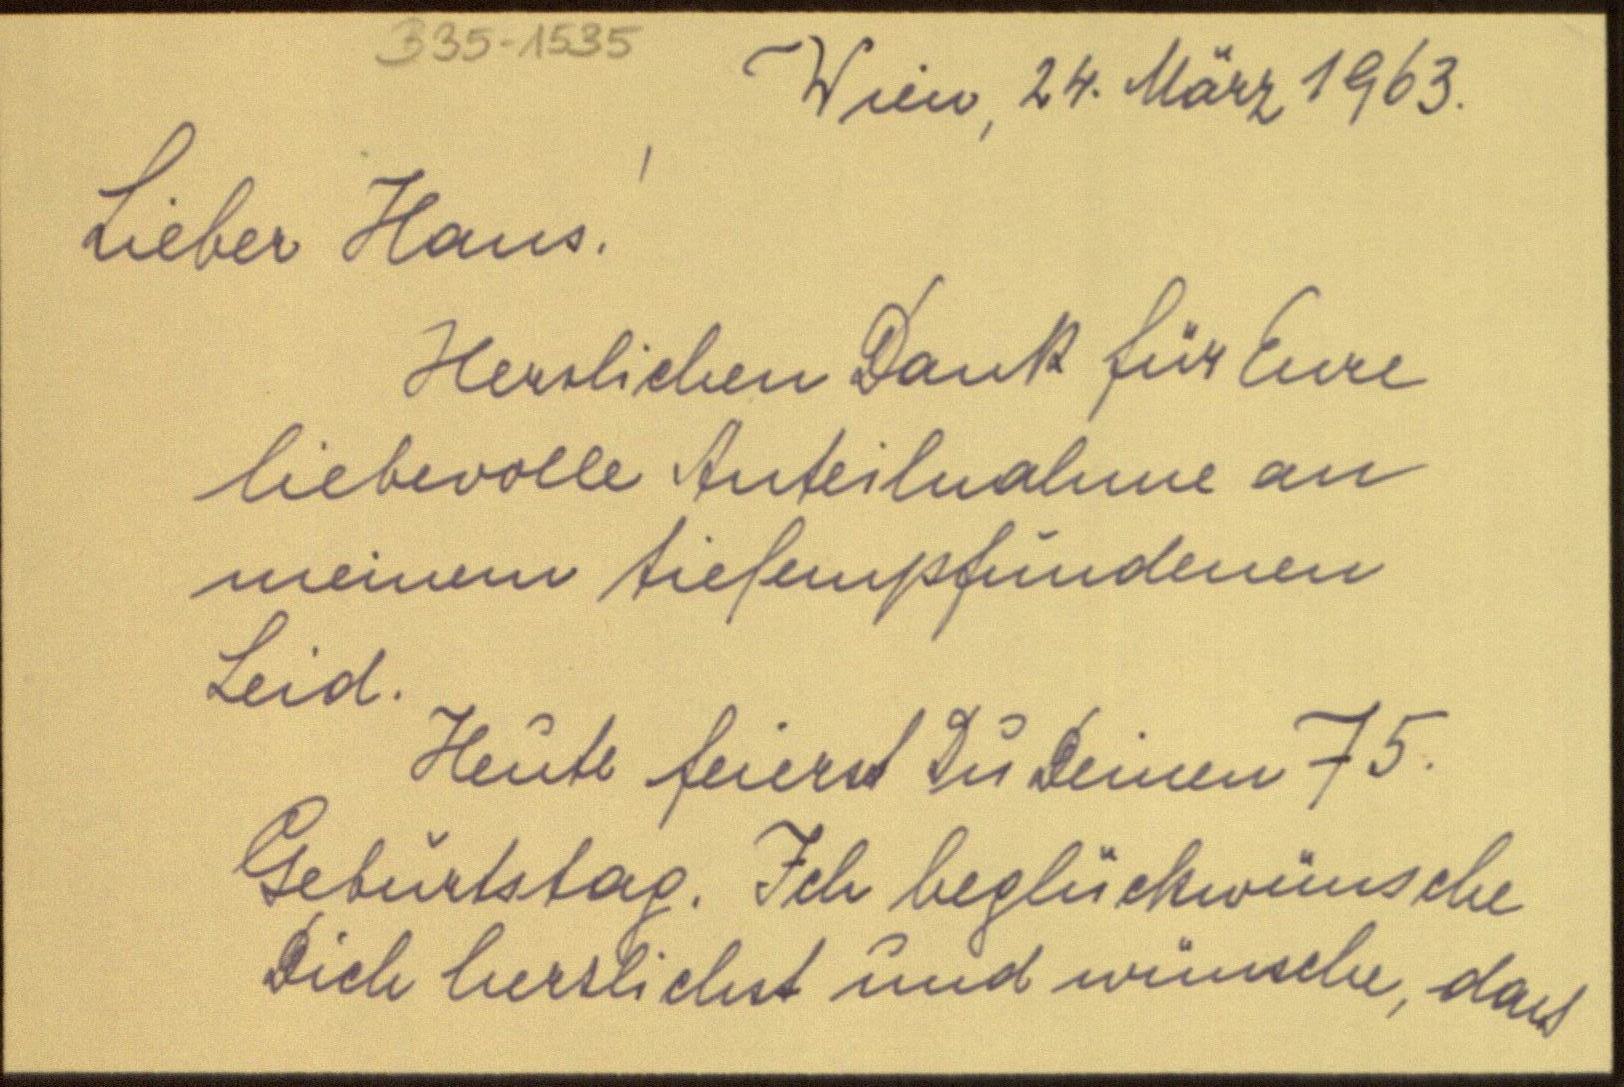 B35-1535
Wien, 24. März 1963.
Lieber Hans!
Herzlichen Dank für Eure
liebevolle Anteilnahme an
meinem tiefempfundenen
Leid.
Heute feierst Du Deinen 75.
Geburtstag. Ich beglückwünsche
Dich herzlichst und wünsche, dass